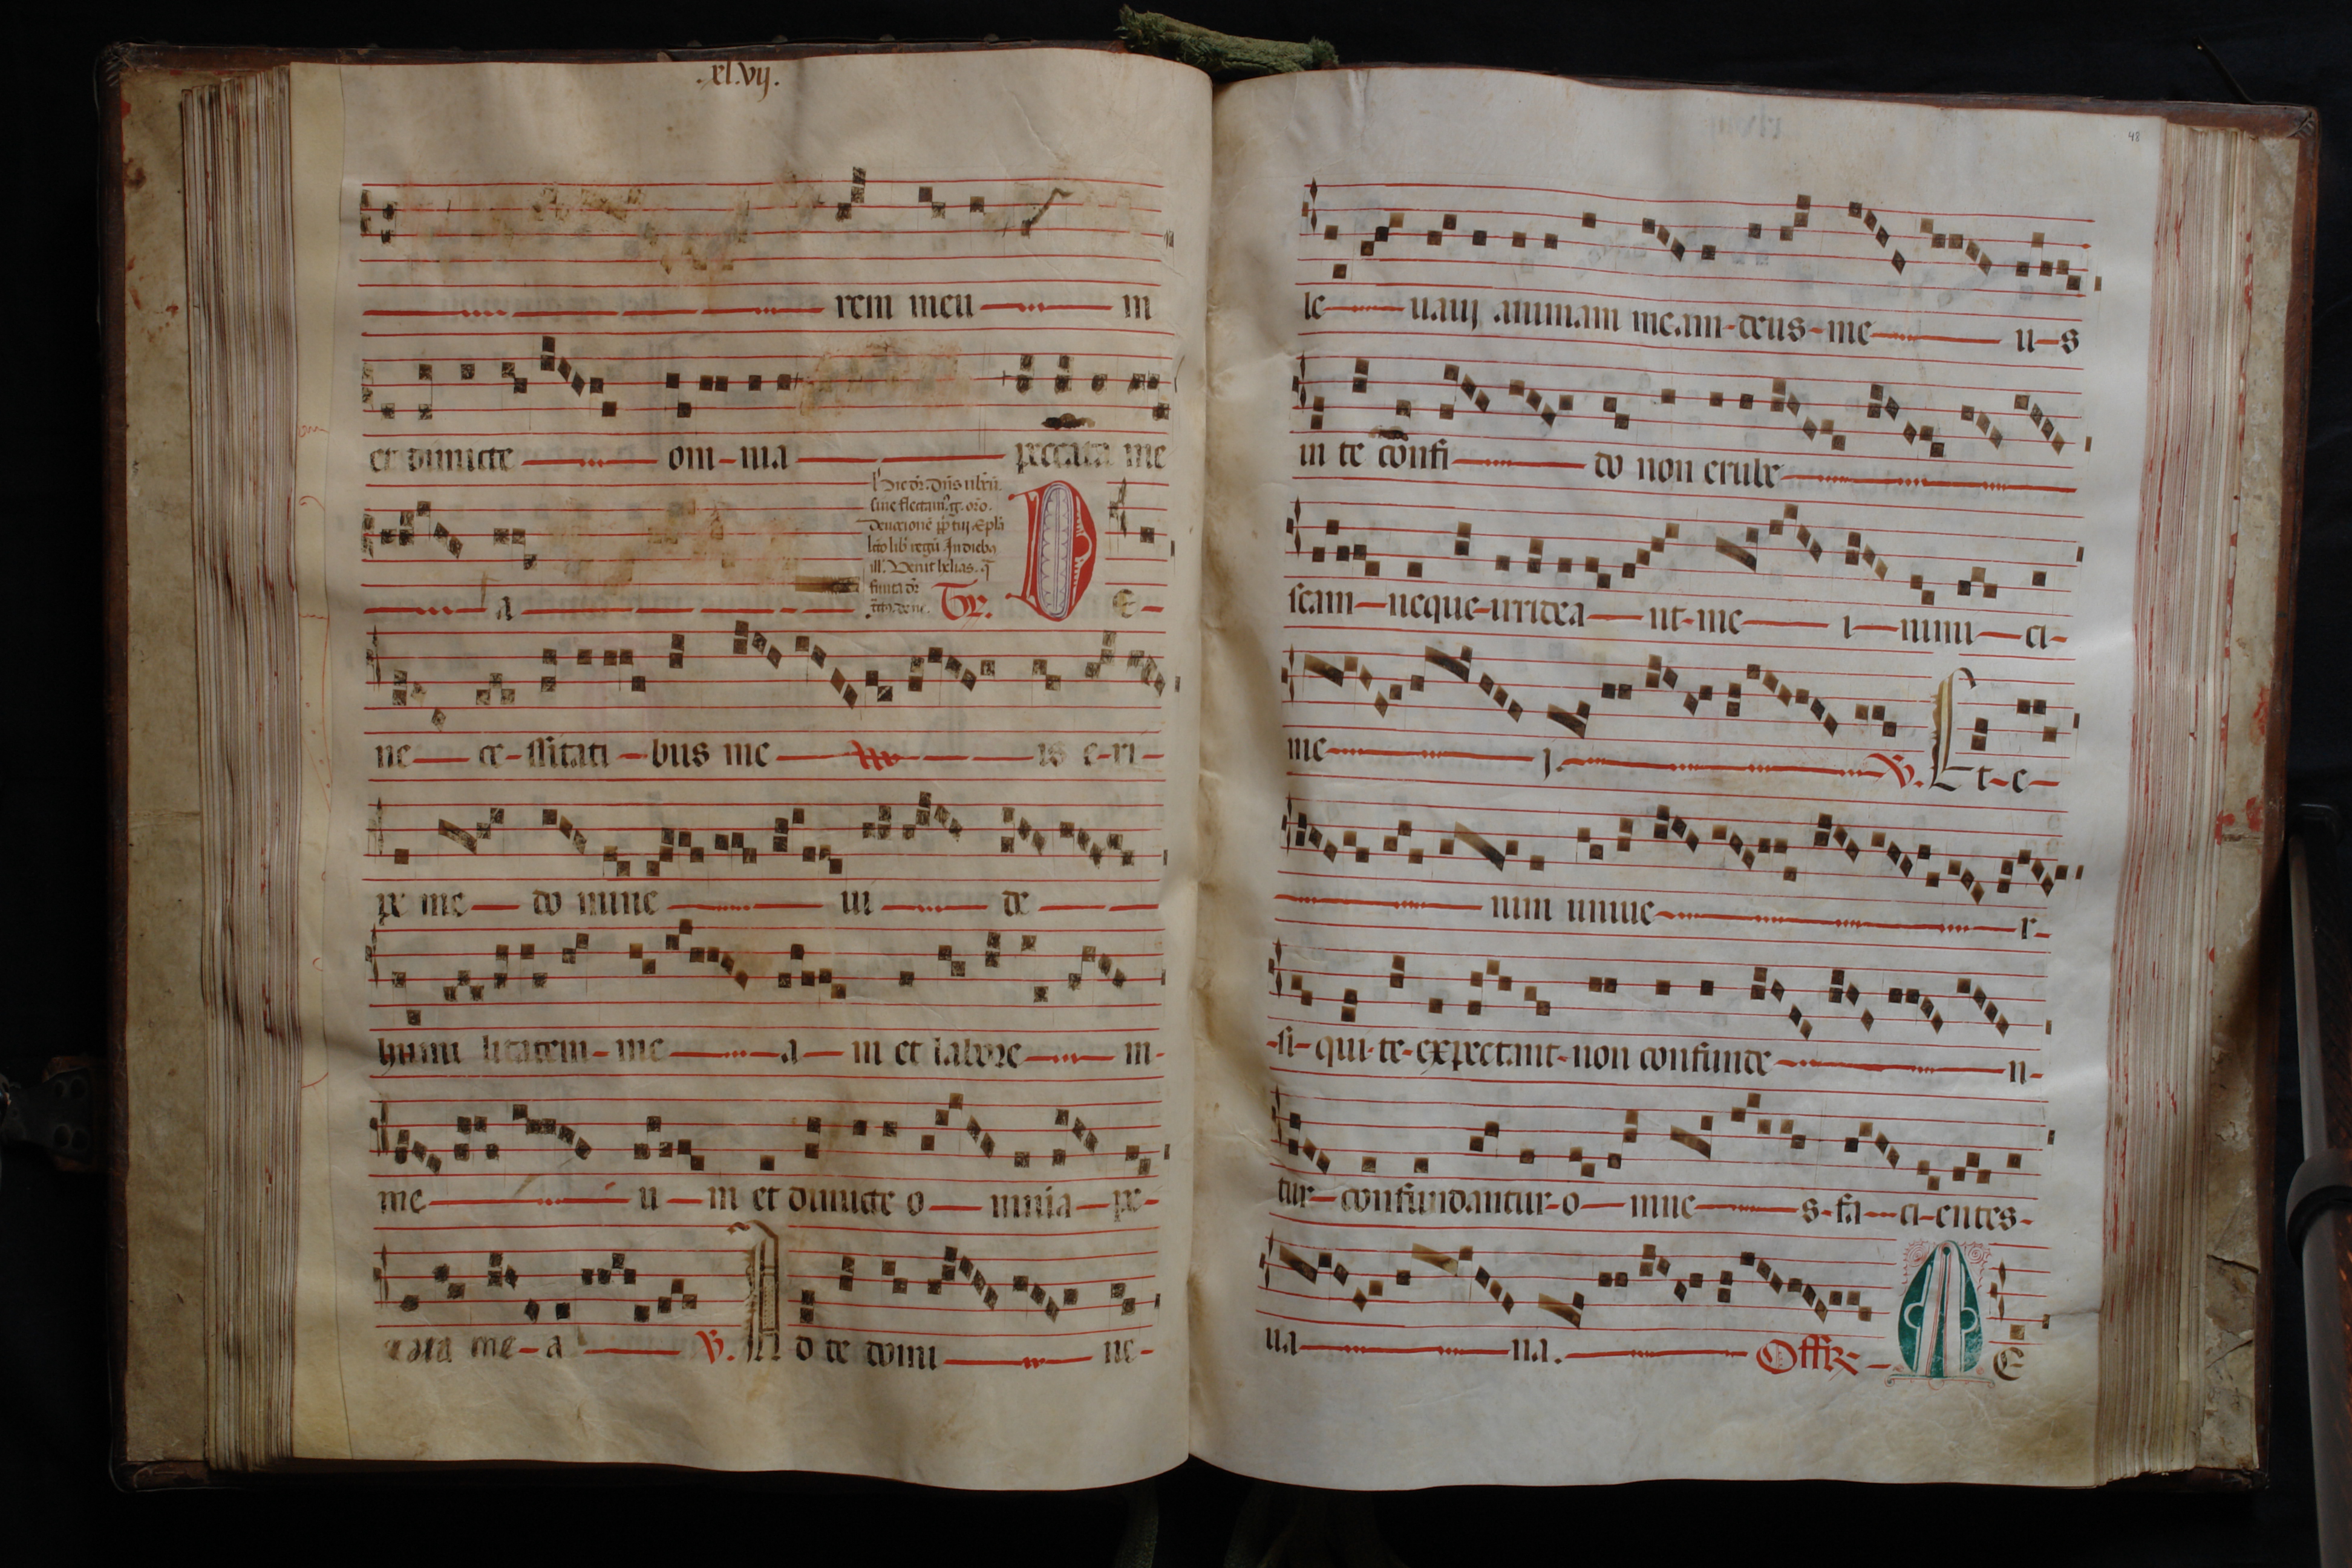 .xl.vij.
rem meu m
et dimicte om-nia peccata me
a
Tr. D E-
ne ce-ssitati-bus me is e-ri-
pe me do mine ui de
humi litatem-me a-in et labore m-
me u-m et dimicte o-mnia-pe-
cata me-a V. A d te domi ne-
48
le uauj animam meam-deus-me u-s
in te confi do non erube
scam-neque-irridea nt-me i-nimi-ci-
me j. V. Et-e-
nim uniue r-
-si-qui-te-expectant-non confunde n-
tur-confundantur-o-mne s-fa-ci-entes-
ua na. Offr- A E